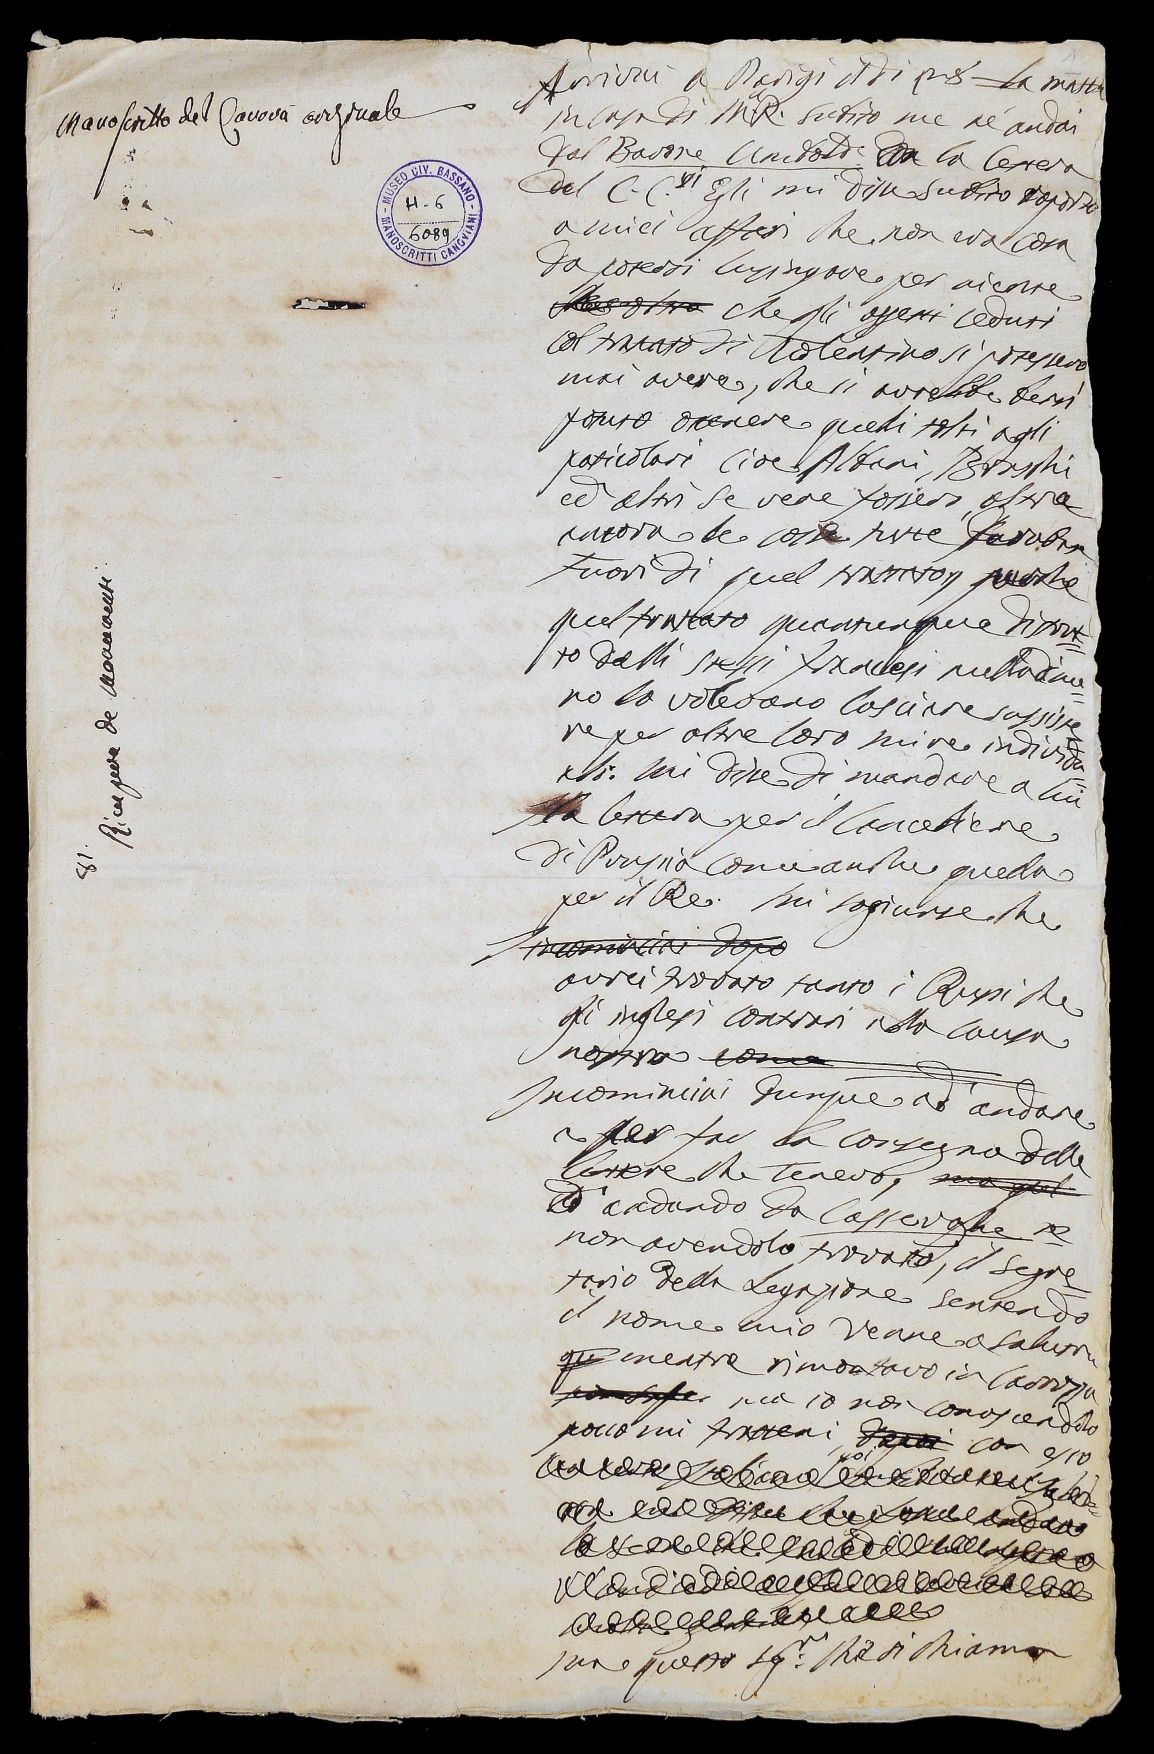 Manoscritto del Canova originale
MUSEO CIV. BASSANO
H-6
6089
MANOSCRITTI CANOVIANI
81.
Ricupera de Monumenti
Arrivai a Parigi il dì
in casa di M.R. subito me ne andai
dal Barone la lettera
del C. C. Egli mi disse subito
a miei affari che non era cosa
da potersi lusingare per niente
che gli oggetti ceduti
col trattato di Tolentino si potessero
mai avere, che si avrebbe bensì
potuto ottenere quelli tolti agli
particolari cioè Albani, Braschi
ed altri se vene fossero, oltre
ancora le cose tutte
fuori di quel trattato, perche
quel trattato quantunque distrut=
to dalli stessi francesi nulladime=
no lo volevano lasciare sussiste
re per altre loro mire individu
ali. Mi disse di mandare a lui
la lettera per il Cancelliere
di Prussia come anche quella
per il Re. Mi sogiunse che
incominciai dopo
avrei trovato tanto i Russi che
gli inglesi contrari alla causa
nostra come
Incominciai dunque ad andare
a per far la consegna delle
lettere che tenevo,
Ed andando da Casseraghe
non avendolo trovato, il segre=
tario della Legazione sentendo
il nome mio venne a salutar
mentre rimontavo in carrozza
ma io non conoscendolo
pocco mi trattenni, con esso
questo sig.r che si chiama